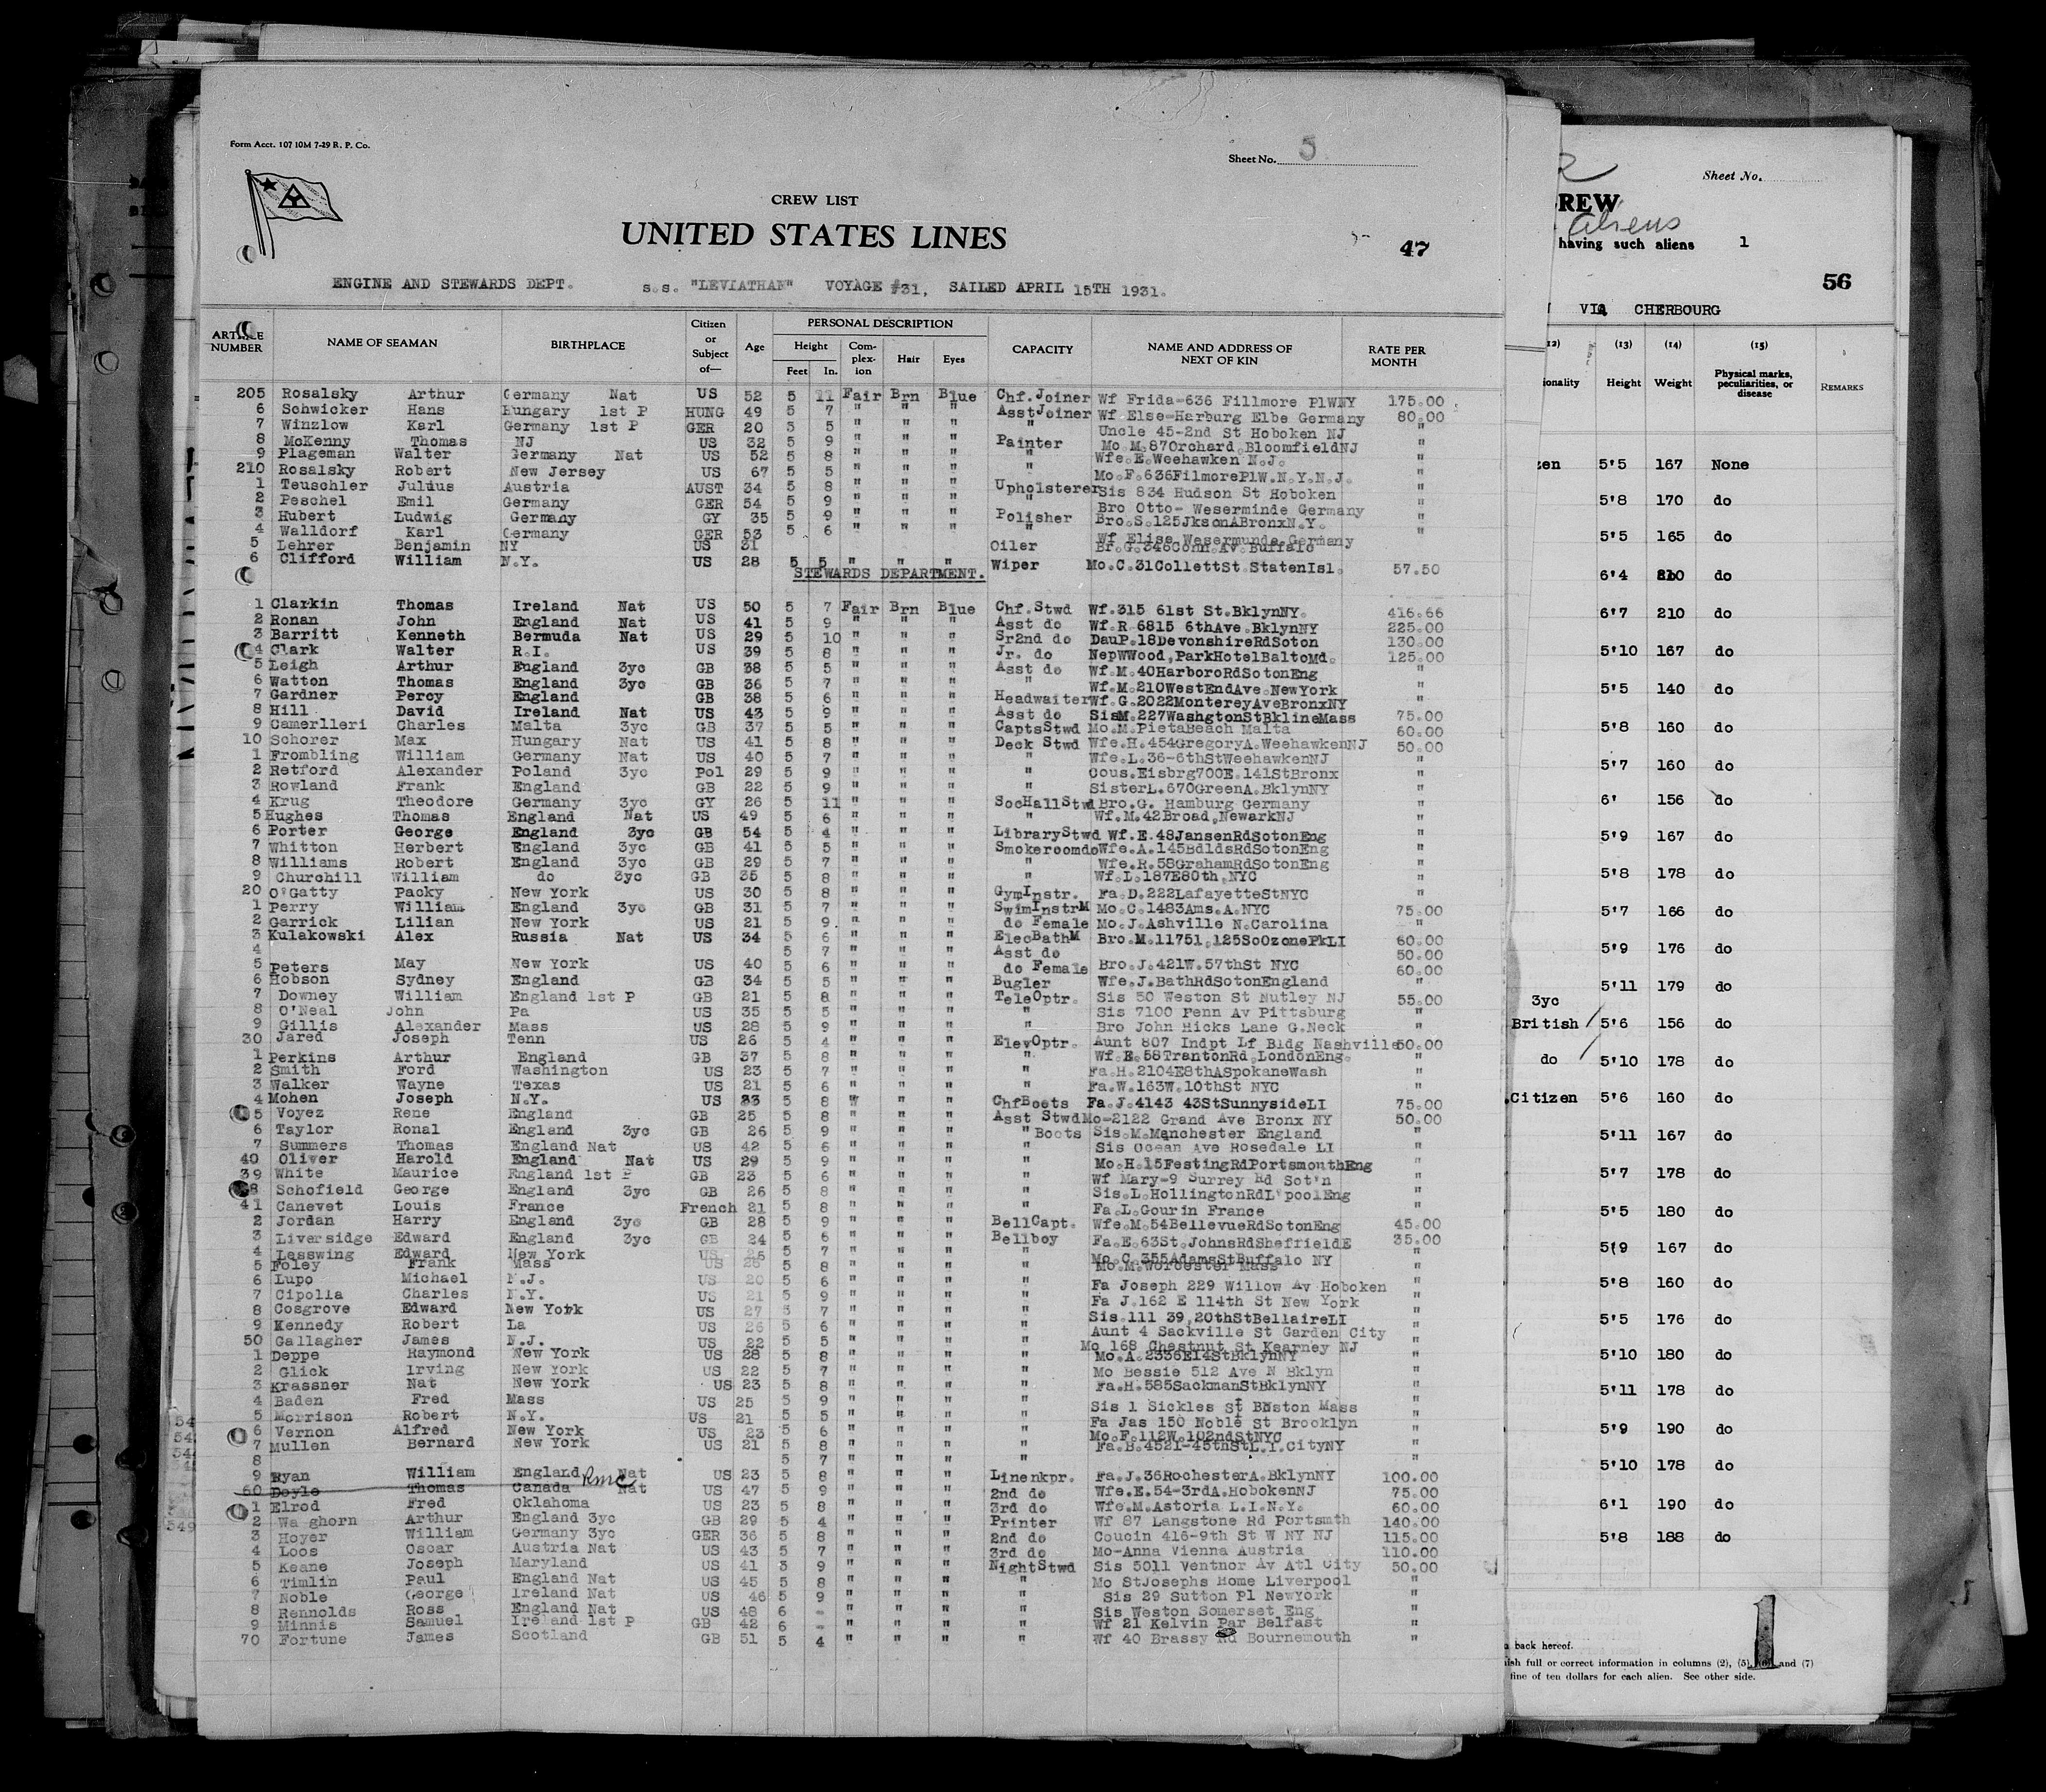 Form Acct. 107 10M 7-29 R. P. Co.
Sheet No. 5
CREW LIST
UNITED STATES LINES
47
ENGINE AND STEWARDS DEPT. s.s. "LEVIATHAN" VOYAGE #31, SAILED APRIL 15TH 1931.
ARTICLE NUMBER NAME OF SEAMAN BIRTHPLACE Citizen or Subject of— Age PERSONAL DESCRIPTION Height Feet In. Com-plex-ion Hair Eyes CAPACITY NAME AND ADDRESS OF NEXT OF KIN RATE PER MONTH
205 Rosalsky Arthur Germany Nat US 52 5 11 Fair Brn Blue Chf.Joiner Wf Frida-636 Fillmore PlWNY 175.00
6 Schwicker Hans Hungary 1st P HUNG 49 5 7 " " " AsstJoiner Wf Else-Harburg Elbe Germany 80.00
7 Winzlow Karl Germany 1st P GER 20 5 5 " " " " Uncle 45-2nd St Hoboken NJ "
8 McKenny Thomas NJ US 32 5 9 " " " Painter Mo.M.87Orchard.BloomfieldNJ "
9 Plageman Walter Germany Nat US 52 5 8 " " " " Wfe.E.Weehawken N.J. "
210 Rosalsky Robert New Jersey US 67 5 5 " " " " Mo.F.636FilmorePlW.N.Y.N.J. "
1 Teuschler Julius Austria AUST 34 5 8 " " " Upholsterer Sis 834 Hudson St Hoboken "
2 Peschel Emil Germany GER 54 5 9 " " " " Bro Otto- Weserminde Germany "
3 Hubert Ludwig Germany GY 35 5 9 " " " Polisher Bro.S.125JksonABronxN.Y. "
4 Walldorf Karl Germany GER 53 5 6 " " " " Wf Elise Wesermunde Germany "
5 Lehrer Benjamin NY US 21 Oiler Br.G.346Conn.Av.Buffalo
6 Clifford William N.Y. US 28 5 5 " " " Wiper Mo.C.31CollettSt.StatenIsl. 57.50
STEWARDS DEPARTMENT.
1 Clarkin Thomas Ireland Nat US 50 5 7 Fair Brn Blue Chf.Stwd Wf.315 61st St.BklynNY. 416.66
2 Ronan John England Nat US 41 5 9 " " " Asst do Wf.R 6815 6thAve.BklynNY 225.00
3 Barritt Kenneth Bermuda Nat US 29 5 10 " " " Sr2nd do DauP.18DevonshireRdSoton 130.00
4 Clark Walter R.I. US 39 5 8 " " " Jr. do NepWWood,ParkHotelBaltoMd. 125.00
5 Leigh Arthur England 3yc GB 38 5 5 " " " Asst do Wf.M.40HarboroRdSotonEng "
6 Watton Thomas England 3yc GB 36 5 7 " " " " Wf.M.210WestEndAve.NewYork "
7 Gardner Percy England GB 38 5 6 " " " Headwaiter Wf.G.2022MontereyAveBronxNY "
8 Hill David Ireland Nat US 43 5 9 " " " Asst do SisM.227WashgtonStBklineMass 75.00
9 Camerlleri Charles Malta 3yc GB 37 5 5 " " " CaptsStwd Mo.M.PietaBeach Malta 60.00
10 Schorer Max Hungary Nat US 41 5 8 " " " Deck Stwd Wfe.H.454GregoryA.WeehawkenNJ 50.00
1 Frombling William Germany Nat US 40 5 7 " " " " Wfe.L.36-6thStWeehawkenNJ "
2 Retford Alexander Poland 3yc Pol 29 5 9 " " " " Cous.Eisbrg700E.141StBronx "
3 Rowland Frank England GB 22 5 9 " " " " SisterL.670GreenA.BklynNY "
4 Krug Theodore Germany 3yc GY 26 5 11 " " " SocHallStwd Bro.G. Hamburg Germany "
5 Hughes Thomas England Nat US 49 5 6 " " " " Wf.M.42Broad,NewarkNJ "
6 Porter George England 3yc GB 54 5 4 " " " LibraryStwd Wf.E.48JansenRdSotonEng "
7 Whitton Herbert England 3yc GB 41 5 5 " " " Smokeroomdo Wfe.A.145BdldsRdSotonEng "
8 Williams Robert England 3yc GB 29 5 7 " " " " Wfe.R.58GrahamRdSotonEng "
9 Churchill William do 3yc GB 35 5 8 " " " " Wf.L.187E80th,NYC "
20 O'Gatty Packy New York US 30 5 8 " " " GymInstr. Fa.D.222LafayetteStNYC "
1 Perry William England 3yc GB 31 5 7 " " " SwimInstrM Mo.C.1483Ams.A.NYC 75.00
2 Garrick Lilian New York US 21 5 9 " " " do Female Mo.J.Ashville N.Carolina "
3 Kulakowski Alex Russia Nat US 34 5 6 " " " ElecBathM Bro.M.11751,125SoOzonePkLI 60.00
4 5 7 " " " Asst do 50.00
5 Peters May New York US 40 5 6 " " " do Female Bro.J.421W.57thSt NYC 60.00
6 Hobson Sydney England GB 34 5 5 " " " Bugler Wfe.J.BathRdSotonEngland "
7 Downey William England 1st P GB 21 5 8 " " " TeleOptr. Sis 50 Weston St Nutley NJ 55.00
8 O'Neal John Pa US 35 5 5 " " " " Sis 7100 Penn Av Pittsburg "
9 Gillis Alexander Mass US 28 5 9 " " " " Bro John Hicks Lane G.Neck "
30 Jared Joseph Tenn US 26 5 4 " " " ElevOptr. Aunt 807 Indpt Lf Bldg Nashville 50.00
1 Perkins Arthur England GB 37 5 8 " " " " Wf.E.58TrantonRd,LondonEng. "
2 Smith Ford Washington US 23 5 7 " " " Fa.H.2104E8thASpokaneWash "
3 Walker Wayne Texas US 21 5 6 " " " " Fa.W.163W.10thSt NYC "
4 Mohen Joseph N.Y. US 33 5 8 W " " ChfBoots Fa.J.4143 43StSunnysideLI 75.00
5 Voyez Rene England GB 25 5 8 " " " Asst Stwd Mo-2122 Grand Ave Bronx NY 50.00
6 Taylor Ronal England 3yc GB 26 5 9 " " " " Boots Sis.M.Manchester England "
7 Summers Thomas England Nat US 42 5 6 " " " " Sis Ocean Ave Rosedale LI "
40 Oliver Harold England Nat US 29 5 9 " " " " Mo.H.15FestingRdPortsmouthEng "
39 White Maurice England 1st P GB 23 5 6 " " " " Wf Mary-9 Surrey Rd Sot'n "
8 Schofield George England 3yc GB 26 5 8 " " " " Sis.L.HollingtonRdL'poolEng "
41 Canevet Louis France French 21 5 8 " " " " Fa.L.Gourin France "
2 Jordan Harry England 3yc GB 28 5 9 " " " BellCapt. Wfe.M.54BellevueRdSotonEng 45.00
3 Liversidge Edward England 3yc GB 24 5 6 " " " Bellboy Fa.E.63St.JohnsRdSheffieldE 35.00
4 Lesswing Edward New York US 25 5 7 " " " " Mo.C.355AdamsStBuffalo NY "
5 Foley Frank Mass US 26 5 8 " " " " Mo.M.Worcester Mass "
6 Lupo Michael N.J. US 20 5 6 " " " " Fa Joseph 229 Willow Av Hoboken "
7 Cipolla Charles N.Y. US 21 5 9 " " " " Fa J.162 E 114th St New York "
8 Cosgrove Edward New York US 27 5 7 " " " " Sis.111 39,20thStBellaireLI "
9 Kennedy Robert La US 26 5 6 " " " " Aunt 4 Sackville St Garden City "
50 Gallagher James N.J. US 22 5 5 " " " " Mo 168 Chestnut St Kearney NJ "
1 Deppe Raymond New York US 28 5 8 " " " " Mo.A.2336E14StBklynNY "
2 Glick Irving New York US 22 5 7 " " " " Mo Bessie 512 Ave N Bklyn "
3 Krassner Nat New York US 23 5 8 " " " " Fa.H.585SackmanStBklynNY "
4 Baden Fred Mass US 25 5 9 " " " " Sis 1 Sickles St Boston Mass "
5 Morrison Robert N.Y. US 21 5 5 " " " " Fa Jas 150 Noble St Brooklyn "
6 Vernon Alfred New York US 23 5 6 " " " " Mo.F.112W.102ndStNYC "
7 Mullen Bernard New York US 21 5 8 " " " " Fa.B.4521-45thStL.I.CityNY "
8 5 7 " " " "
9 Ryan William England Nat US 23 5 8 " " " Linenkpr. Fa.J.36RochesterA.BklynNY 100.00
60 Doyle Thomas Canada Nat US 47 5 9 " " " 2nd do Wfe.E.54-3rdA.HobokenNJ 75.00
1 Elrod Fred Oklahoma US 23 5 8 " " " 3rd do Wfe.M.Astoria L.I.N.Y. 60.00
2 Waghorn Arthur England 3yc GB 29 5 4 " " " Printer Wf 87 Langstone Rd Portsmth 140.00
3 Hoyer William Germany 3yc GER 36 5 8 " " " 2nd do Coucin 416-9th St W NY NJ 115.00
4 Loos Oscar Austria Nat US 43 5 7 " " " 3rd do Mo-Anna Vienna Austria 110.00
5 Keane Joseph Maryland US 41 3 9 " " " NightStwd Sis 5011 Ventnor Av Atl City 50.00
6 Timlin Paul England Nat US 45 5 8 " " " " Mo StJosephs Home Liverpool "
7 Noble George Ireland Nat US 46 5 9 " " " " Sis 29 Sutton Pl NewYork "
8 Rennolds Ross England Nat US 48 6 - " " " " Sis Weston Somerset Eng "
9 Minnis Samuel Ireland 1st P GB 42 6 - " " " " Wf 21 Kelvin Par Belfast "
70 Fortune James Scotland GB 51 5 4 " " " " Wf 40 Brassy Rd Bournemouth "
Sheet No.
REW
aliens
having such aliens 1
56
VIA CHERBOURG
(13) (14) (15)
ionality Height Weight Physical marks, peculiarities, or disease REMARKS
zen 5'5 167 None
5'8 170 do
5'5 165 do
6'4 210 do
6'7 210 do
5'10 167 do
5'5 140 do
5'8 160 do
5'7 160 do
6' 156 do
5'9 167 do
5'8 178 do
5'7 166 do
5'9 176 do
5'11 179 do
3yc
British 5'6 156 do
do 5'10 178 do
Citizen 5'6 160 do
5'11 167 do
5'7 178 do
5'5 180 do
5(9 167 do
5'8 160 do
5'5 176 do
5'10 180 do
5'11 178 do
5'9 190 do
5'10 178 do
6'1 190 do
5'8 188 do
back hereof.
full or correct information in columns (2), (5), and (7)
fine of ten dollars for each alien. See other side.